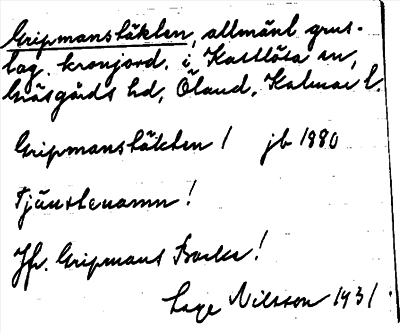 Gripmanstäkten, allmänt grus-
tag. kronjord. i Kastlösa sn,
Gräsgårds hd, Öland, Kalmar l.
Gripmanstäkten / jb 1880
Tjänstenamn!
Jfr. Gripmans Backe!
Lage Nilsson 1931.